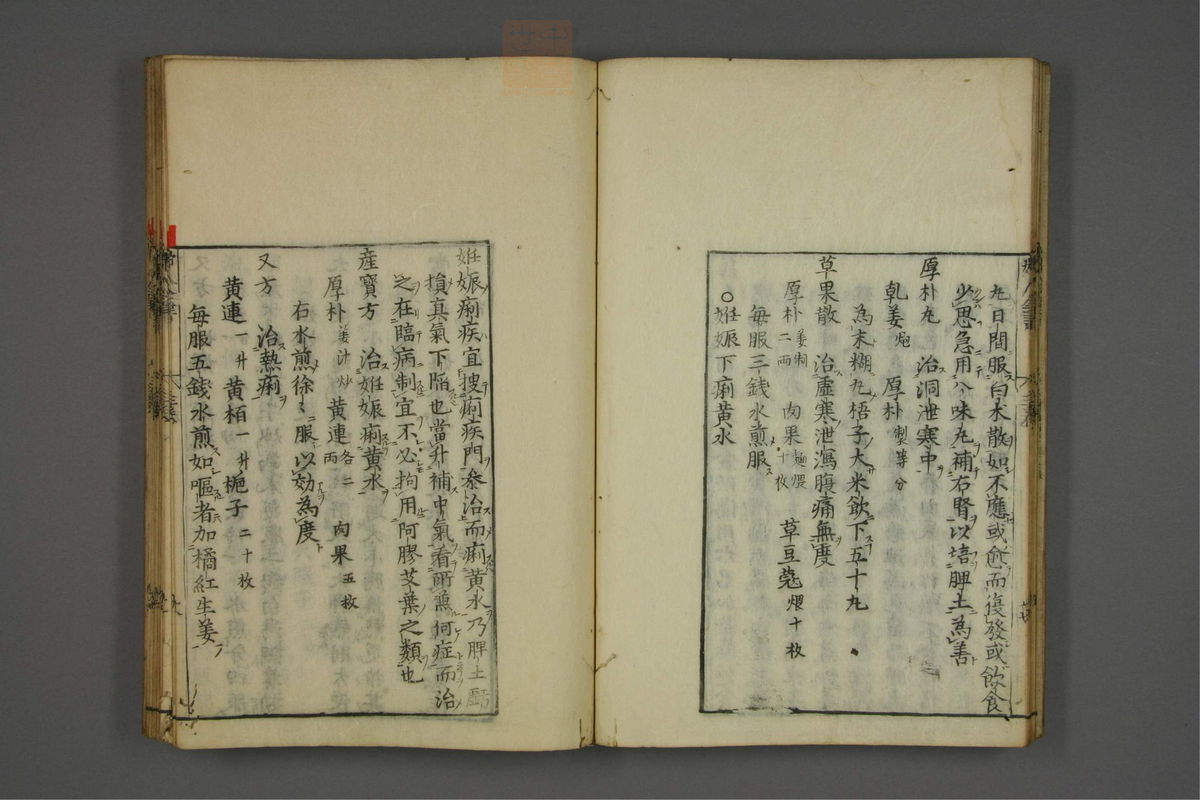 丸日間服白朮散如不應或愈而復發或飲食
少思急用八味丸補右腎以培脾土為善
厚朴丸　治洞泄寒中
乾姜炮　厚朴製等分
為末糊丸梧子大米飲下五十丸
草果散　治虛寒泄瀉腹痛無度
厚朴二兩姜制　肉果十枚麵煨　草豆蔲煨十枚
每服三錢水煎服
○妊娠下痢黄水
妊娠痢疾宜搜痢疾門參治而痢黄水乃脾土虧
損真氣下陷也當升補中氣看所兼何症而治
之在臨病制宜不必拘用阿膠艾葉之類也
産寶方　治妊娠痢黄水
厚朴姜汁炒　黄連各二兩　肉果五枚
右水煎徐〻服以効為度
又方　治熱痢
黄連一升　黄栢一升　梔子二十枚
每服五錢水煎如嘔者加橘紅生姜